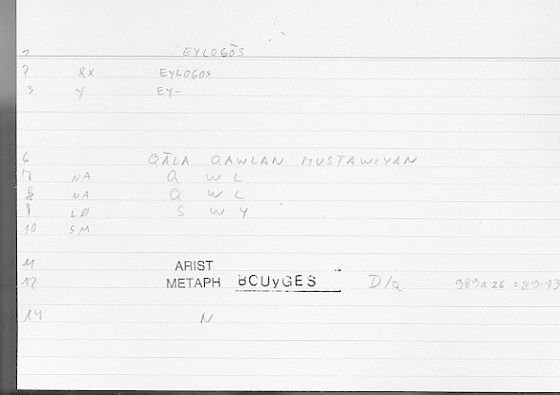 1 EYLOGŌS
2 RX EYLOGOS
3 Y EY-
6 QĀLA QAWLAN MUSTAWIYAN
7 NA Q W L
8 NA Q W L
9 LØ S W Y
10 SM
11 ARIST
12 METAPH BOUyGES D/a 989a26 = 89.13
14 N